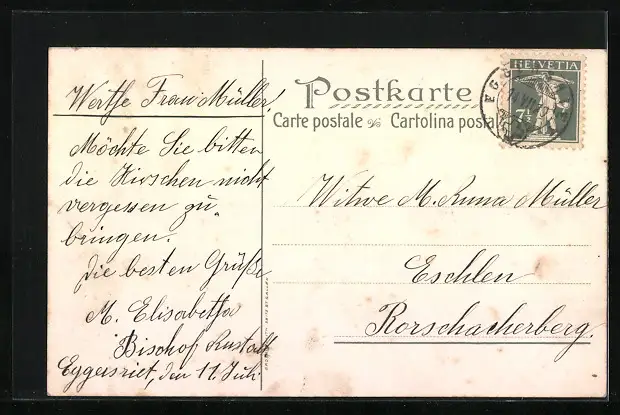 Werthe Frau Müller!
Möchte Sie bitten
die Kirschen nicht
vergessen zu
bringen.
Die besten Grüße
M. Elisabetha
Bischof
Eggersriet, den 11. Juli
Postkarte
Carte postale Cartolina postale
HELVETIA
7½
Witwe M. Anna Müller
Eschlen
Rorschacherberg.